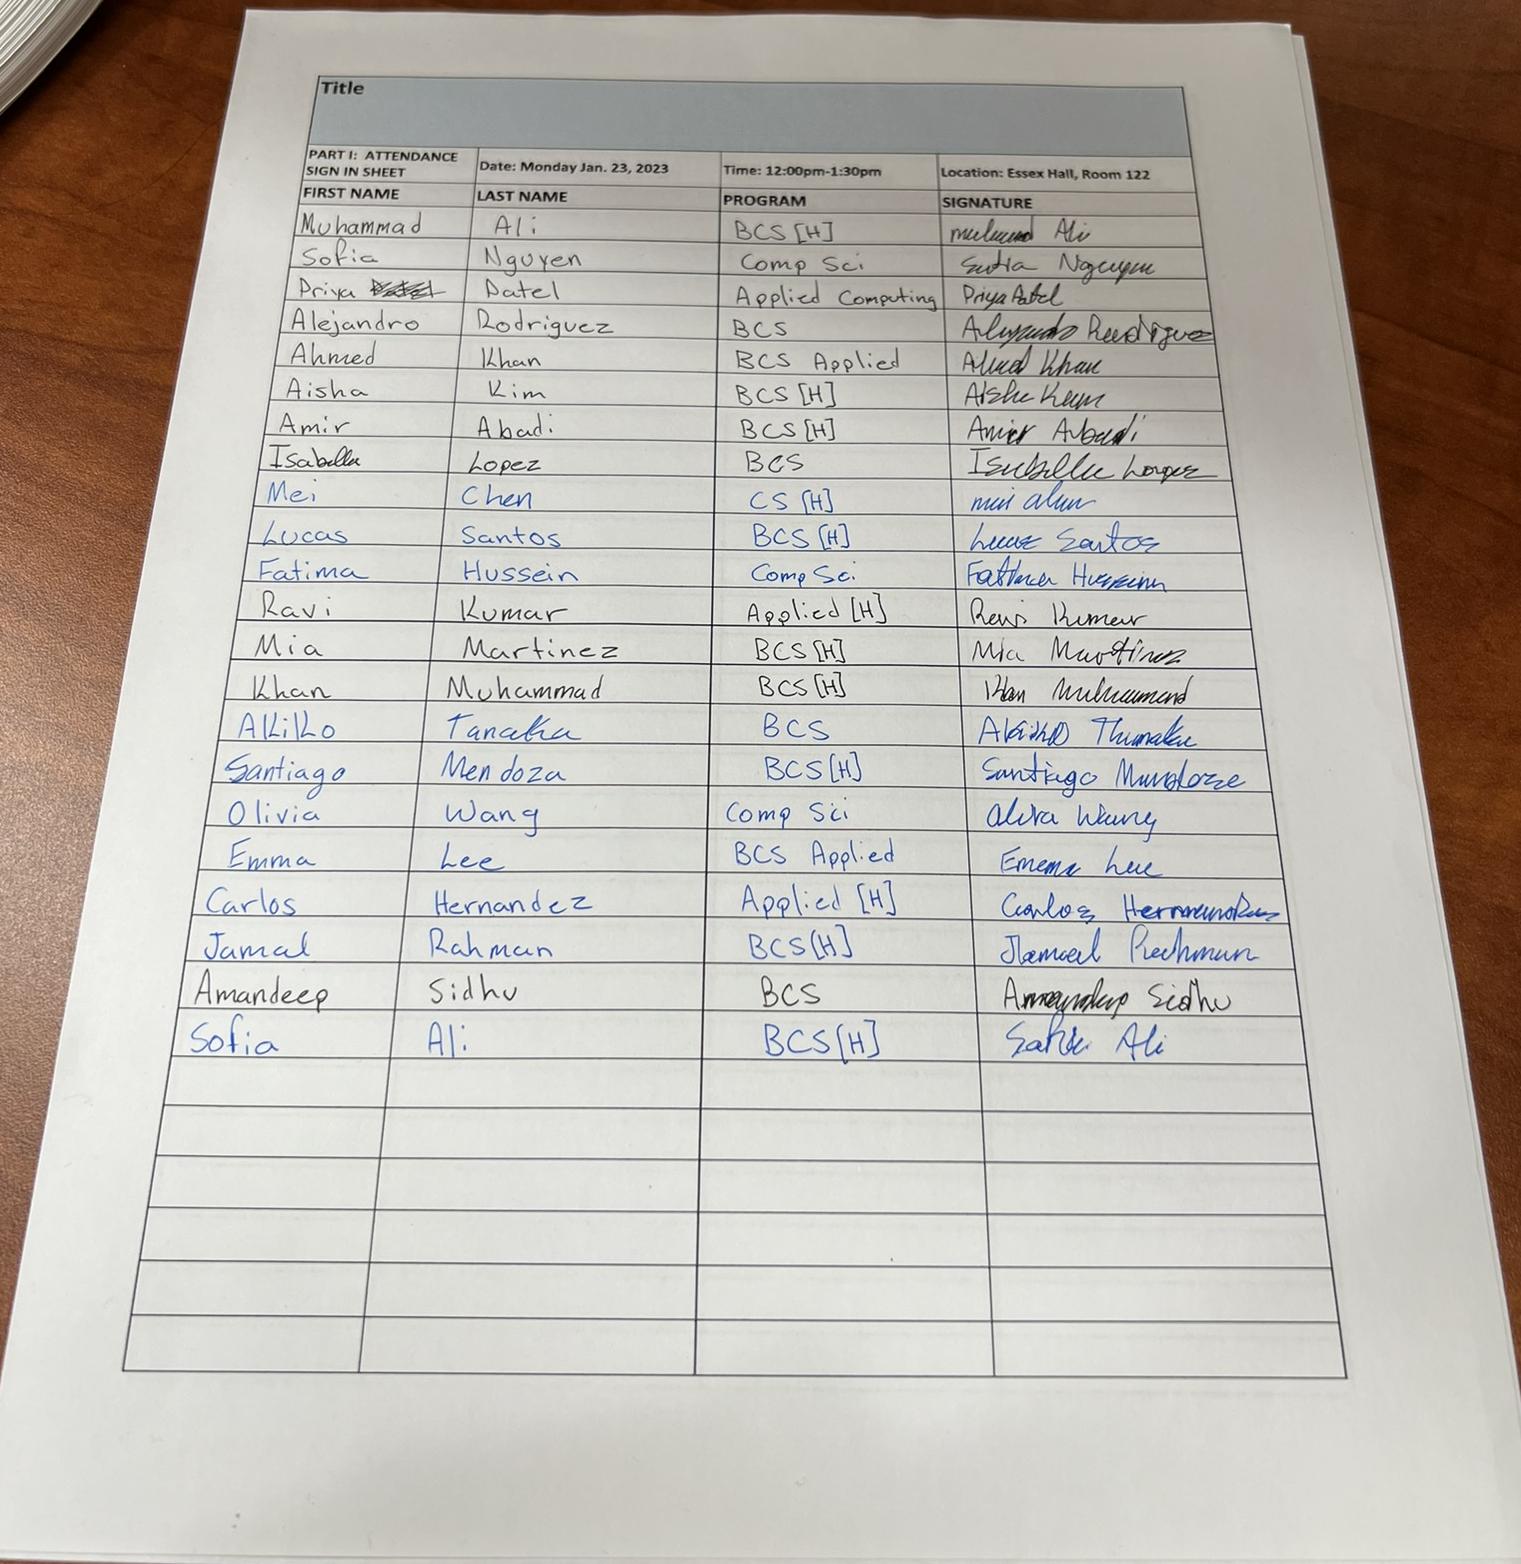 Title
PART I: ATTENDANCE SIGN IN SHEET Date: Monday Jan. 23, 2023 Time: 12:00pm-1:30pm Location: Essex Hall, Room 122
FIRST NAME LAST NAME PROGRAM SIGNATURE
Muhammad Ali BCS [H] Ali
Sofia Nguyen Comp Sci Nguyen
Priya Patel Applied Computing Priya Patel
Alejandro Rodriguez BCS
Ahmed Khan BCS Applied Khan
Aisha Kim BCS [H]
Amir Abadi BCS [H] Amir Abadi
Isabella Lopez BCS Isabella Lopez
Mei Chen CS [H]
Lucas Santos BCS [H] Lucas Santos
Fatima Hussein Comp Sci.
Ravi Kumar Applied [H] Ravi Kumar
Mia Martinez BCS [H] Mia Martinez
Khan Muhammad BCS [H]
Akiko Tanaka BCS
Santiago Mendoza BCS [H] Santiago
Olivia Wang Comp Sci Wang
Emma Lee BCS Applied Lee
Carlos Hernandez Applied [H] Carlos
Jamal Rahman BCS [H]
Amandeep Sidhu BCS Amandeep Sidhu
Sofia Ali BCS [H] Ali